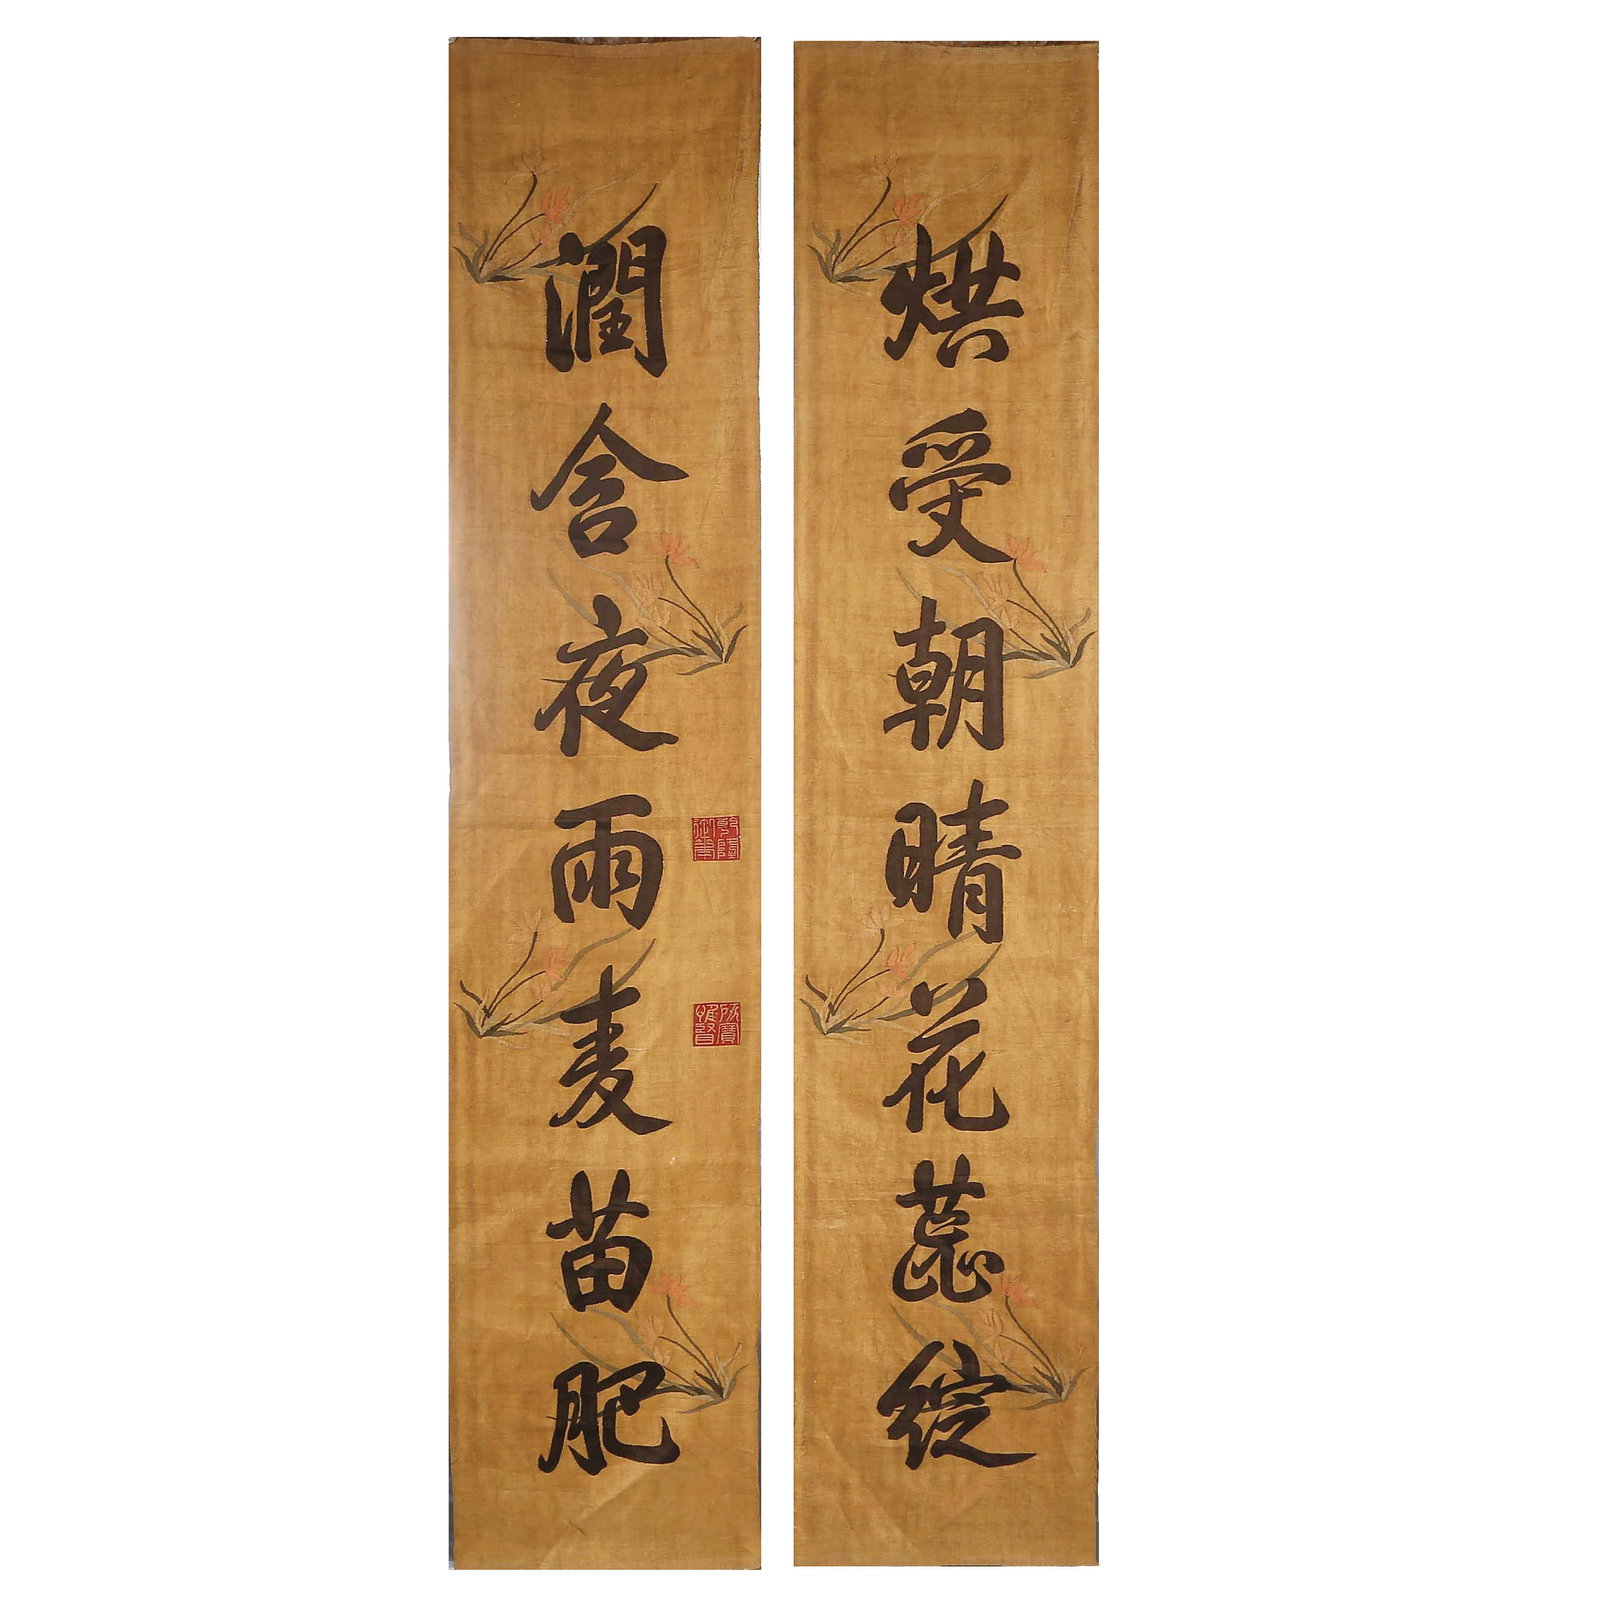 烘受朝晴花蕊綻
潤含夜雨麦苗肥
乾隆御筆
所寶惟賢